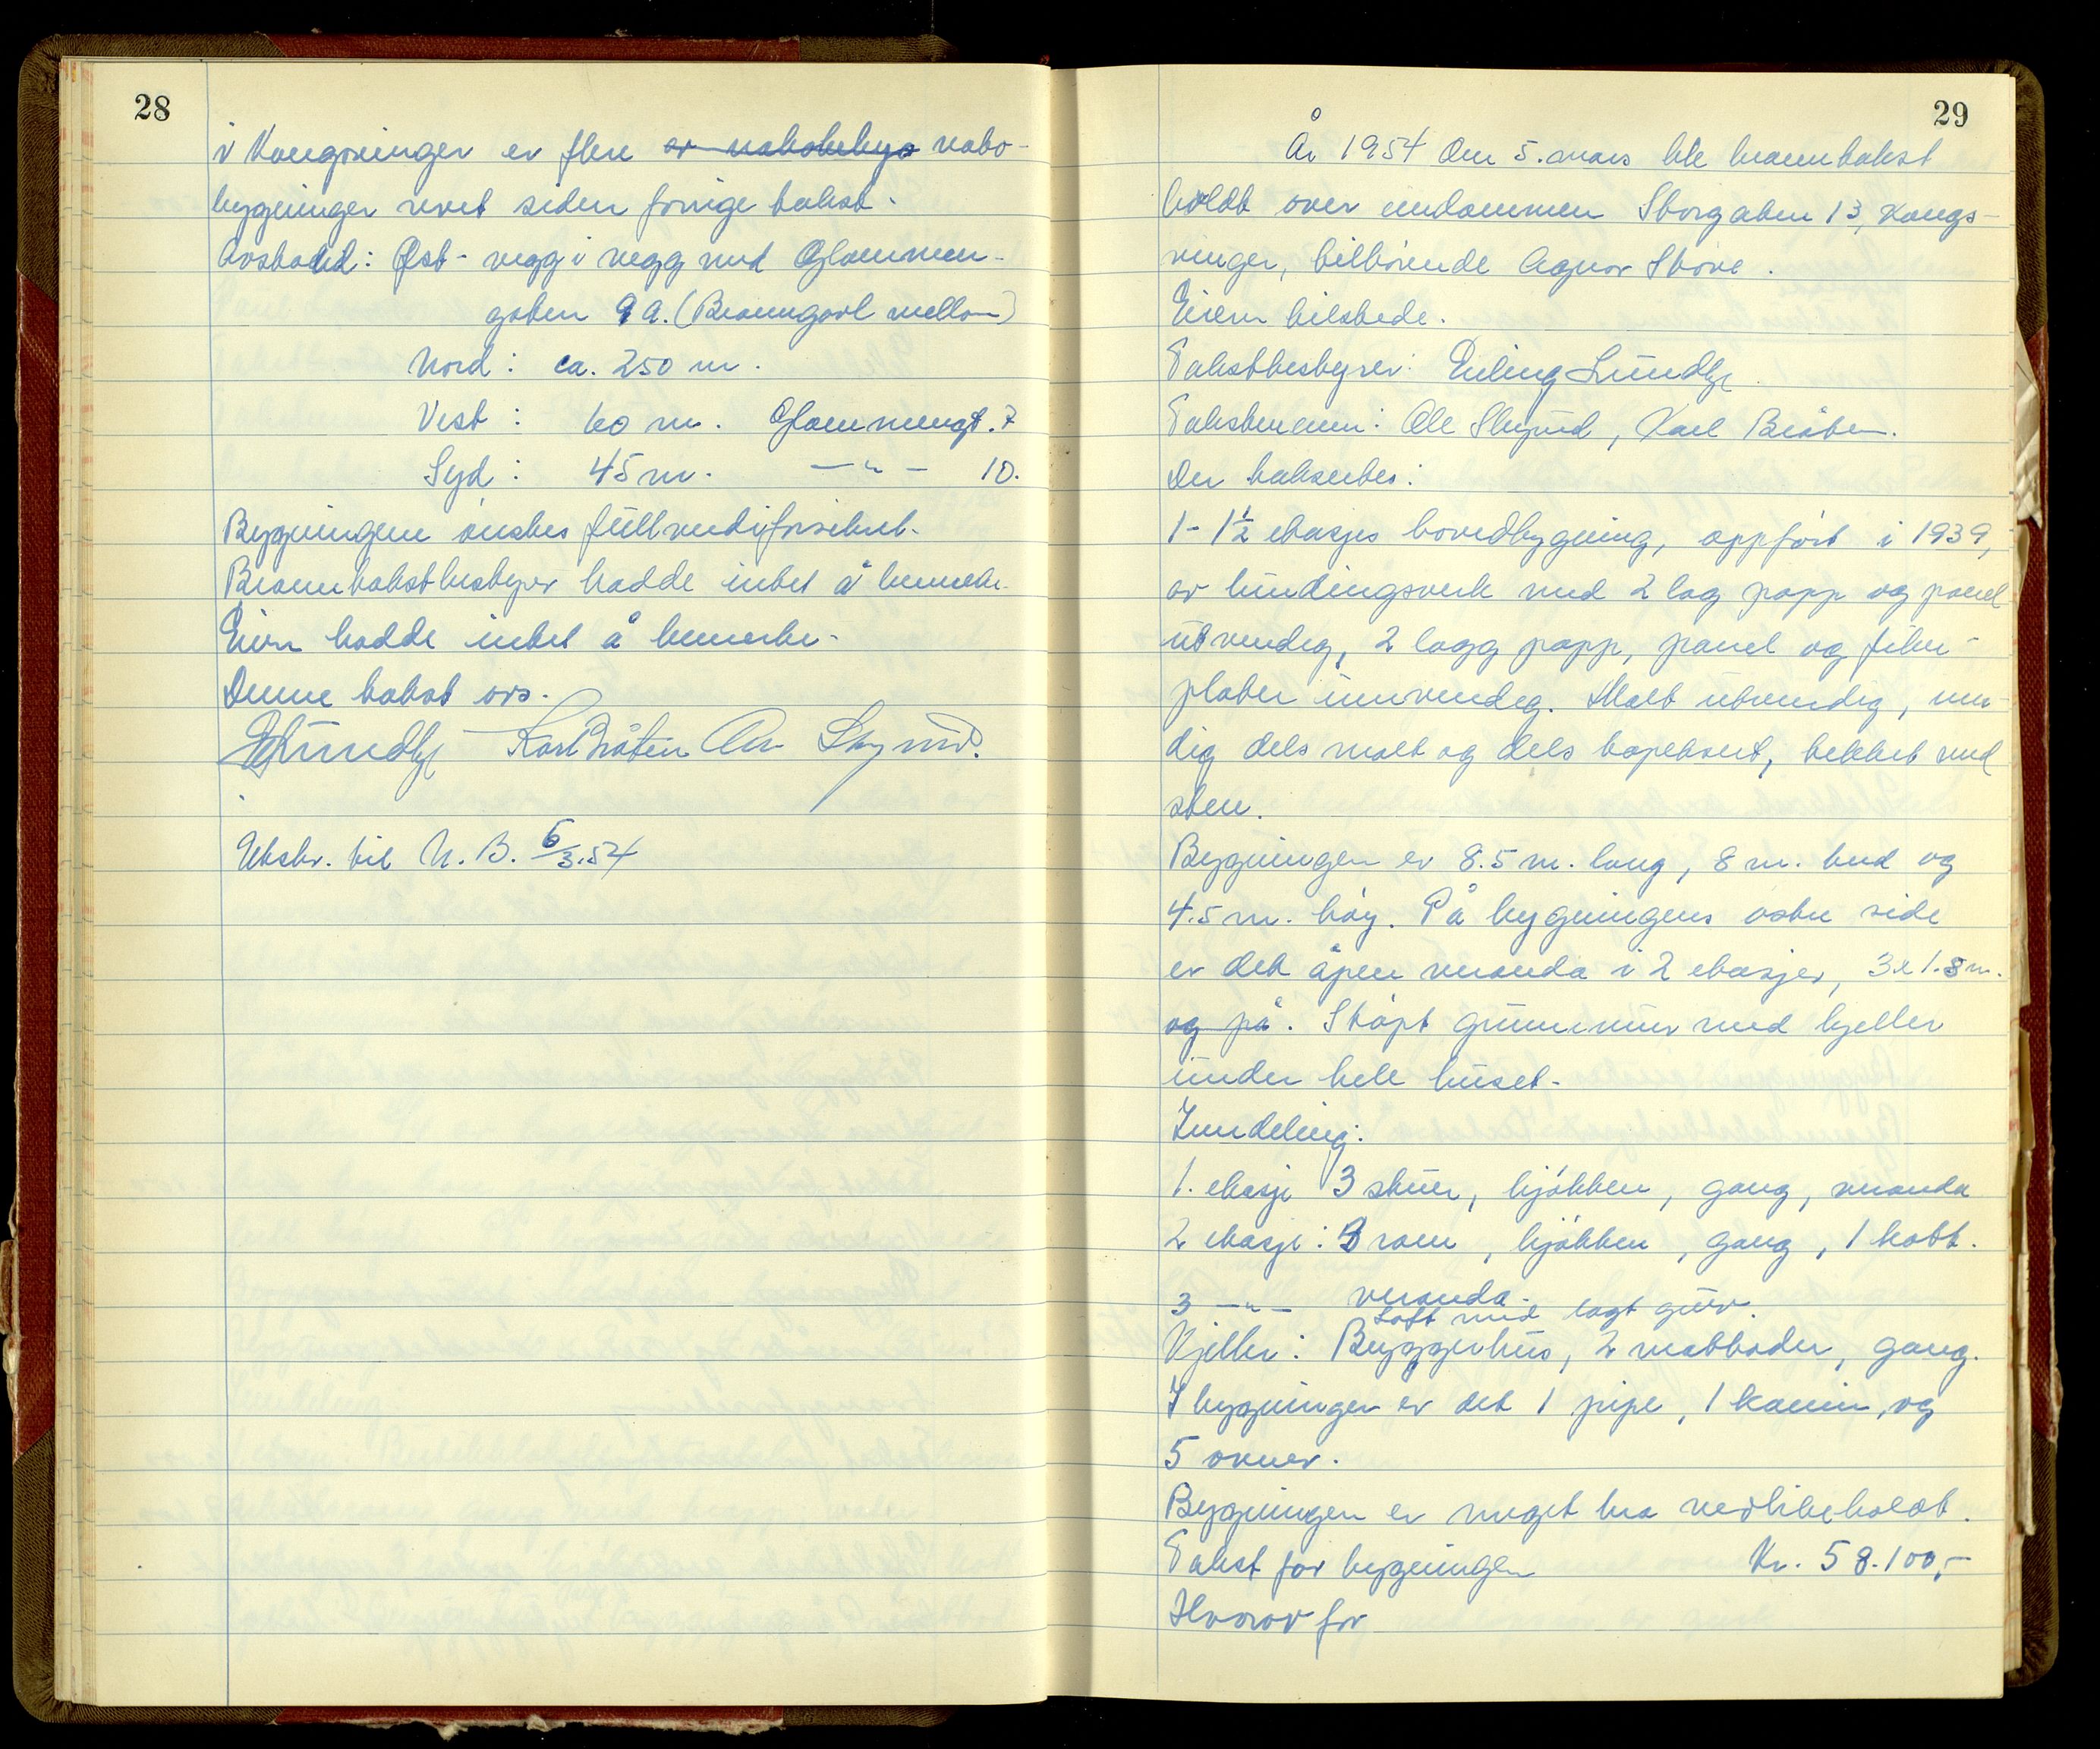 28
i Kongsvinger er flere av nabobebyg nabo-
bygninger revet siden forrige takst.
Avstand: Øst - vegg i vegg med Glommen-
gaten 9 A. (Branngavl mellom)
Nord: ca. 250 m.
Vest: 60 m. Glommengt. 7
Syd: 45 m. — " — 10.
Bygningene ønskes fullverdiforsikret.
Branntakstbestyrer hadde intet å bemerke.
Eieren hadde intet å bemerke.
Denne takst avs.
E. Lundby Karl Bråten Ole Skynd.
Utskr. til N.B. 6/3.54
29
År 1954 den 5. mars ble branntakst
holdt over eiendommen Storgaten 13, Kongs-
vinger, tilhørende Agnar Støve.
Eieren tilstede.
Takstbestyrer: Erling Lundby
Takstmenn: Ole Skynd, Karl Bråten.
Der takseres:
1- 1½ etasjes hovedbygning, oppført i 1939,
av bindingsverk med 2 lag papp og panel
utvendig, 2 lagg papp, panel og fiber-
plater innvendig. Malt utvendig, inn-
dig dels malt og dels tapetsert, tekket med
sten.
Bygningen er 8.5 m. lang, 8 m. bred og
4.5 m. høy. På bygningens østre side
er det åpen veranda i 2 etasjer, 3 x 1.8 m.
og på. Støpt grunnmur med kjeller
under hele huset.
Inndeling:
1. etasje 3 stuer, kjøkken, gang, veranda
2 etasje: 3 rom, kjøkken, gang, 1 kott.
veranda.
3 — " — Loft med lagt gulv.
Kjeller: Bryggerhus, 2 matboder, gang.
I bygningen er det 1 pipe, 1 kamin, og
5 ovner.
Bygningen er meget bra vedlikeholdt.
Takst for bygningen Kr. 58.100,-
Hvorav for